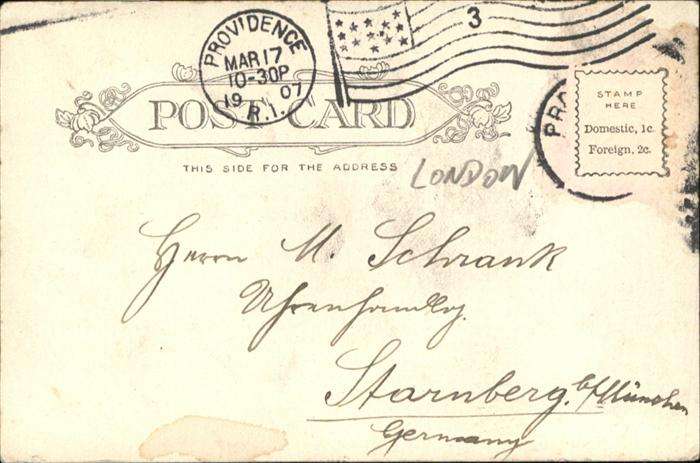 PROVIDENCE
MAR 17
10-30P
1907
R.I.
3
POST CARD
THIS SIDE FOR THE ADDRESS
PRO
STAMP
HERE
Domestic, 1c.
Foreign, 2c.
LONDON
Herrn M. Schrank
Uhrenhandlg.
Starnberg b/München
Germany